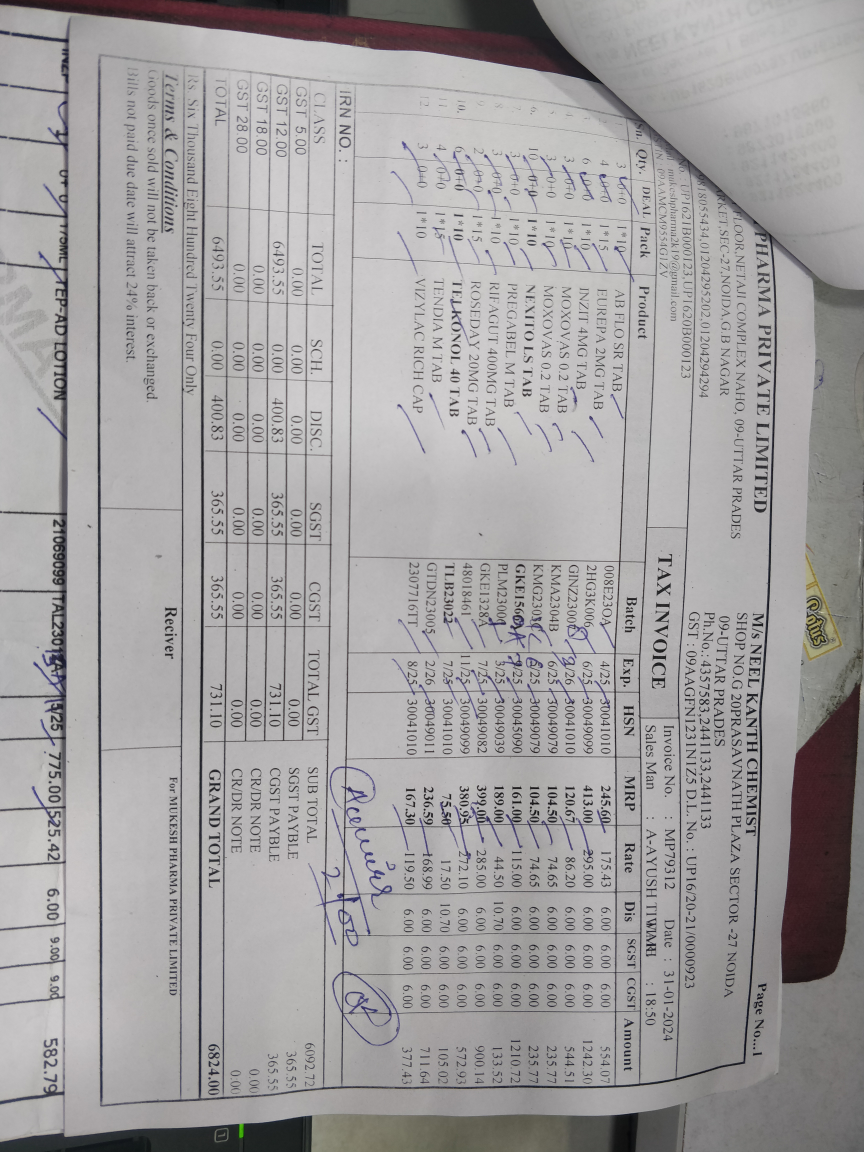 PHARMA PRIVATE LIMITED
FLOOR,NETAJI COMPLEX NAHO, 09-UTTAR PRADES
RKET,SEC-27,NOIDA,G B NAGAR
18055434,01204295202,01204294294
No. : UP1621B000123,UP1620B000123
mukeshpharma2k19@gmail.com
: 09AAMCM9554G1ZV
TAX INVOICE
Page No...1
M/s NEEL KANTH CHEMIST
SHOP NO.G 20PRASAVNATH PLAZA SECTOR -27 NOIDA
09-UTTAR PRADES
Ph.No.: 4357583,2441133,2441133
GST : 09AAGFN1231N1Z5 D.L. No. : UP16/20-21/0000923
Invoice No. : MP79312 Date : 31-01-2024
Sales Man : A-AYUSH TIWARI : 18:50
Sn. Qty. DEAL Pack Product Batch Exp. HSN MRP Rate Dis SGST CGST Amount
3 0+0 1*10 AB FLO SR TAB 008E23OA 4/25 30041010 245.60 175.43 6.00 6.00 6.00 554.07
4 0+0 1*15 EUREPA 2MG TAB 2HG3K006 6/25 30049099 413.00 295.00 6.00 6.00 6.00 1242.30
6 0+0 1*10 INZIT 4MG TAB GINZ23007 9/26 30041010 120.67 86.20 6.00 6.00 6.00 544.51
3 0+0 1*10 MOXOVAS 0.2 TAB KMA2304B 6/25 30049079 104.50 74.65 6.00 6.00 6.00 235.77
3 0+0 1*10 MOXOVAS 0.2 TAB 6/25 30049079 104.50 74.65 6.00 6.00 6.00 235.77
6. 10 0+0 1*10 NEXITO LS TAB 30045090 161.00 115.00 6.00 6.00 6.00 1210.72
7. 3 0+0 1*10 PREGABEL M TAB 3/25 30049039 189.00 44.50 10.70 6.00 6.00 133.52
8. 3 0+0 1*10 RIFAGUT 400MG TAB GKE1328A 7/25 30049082 399.00 285.00 6.00 6.00 6.00 900.14
9. 2 0+0 1*15 ROSEDAY 20MG TAB 48018461 11/25 30049099 380.95 272.10 6.00 6.00 6.00 572.93
10. 6 0+0 1*10 TELKONOL 40 TAB TLB23022 7/25 30041010 75.50 17.50 10.70 6.00 6.00 105.02
11. 4 0+0 1*15 TENDIA M TAB GTDN23005 2/26 30049011 236.59 168.99 6.00 6.00 6.00 711.64
12. 3 0+0 1*10 VIZYLAC RICH CAP 2307716TT 8/25 30041010 167.30 119.50 6.00 6.00 6.00 377.43
IRN NO. :
CLASS TOTAL SCH. DISC. SGST CGST TOTAL GST
GST 5.00 0.00 0.00 0.00 0.00 0.00 0.00
GST 12.00 6493.55 0.00 400.83 365.55 365.55 731.10
GST 18.00 0.00 0.00 0.00 0.00 0.00 0.00
GST 28.00 0.00 0.00 0.00 0.00 0.00 0.00
TOTAL 6493.55 0.00 400.83 365.55 365.55 731.10
SUB TOTAL 6092.72
SGST PAYBLE 365.55
CGST PAYBLE 365.55
CR/DR NOTE 0.00
CR/DR NOTE 0.00
GRAND TOTAL 6824.00
Rs. Six Thousand Eight Hundred Twenty Four Only
Terms & Conditions
Goods once sold will not be taken back or exchanged.
Bills not paid due date will attract 24% interest.
Reciver
For MUKESH PHARMA PRIVATE LIMITED
175ML TEP-AD LOTION 21069099 5/25 775.00 525.42 6.00 9.00 9.00 582.79